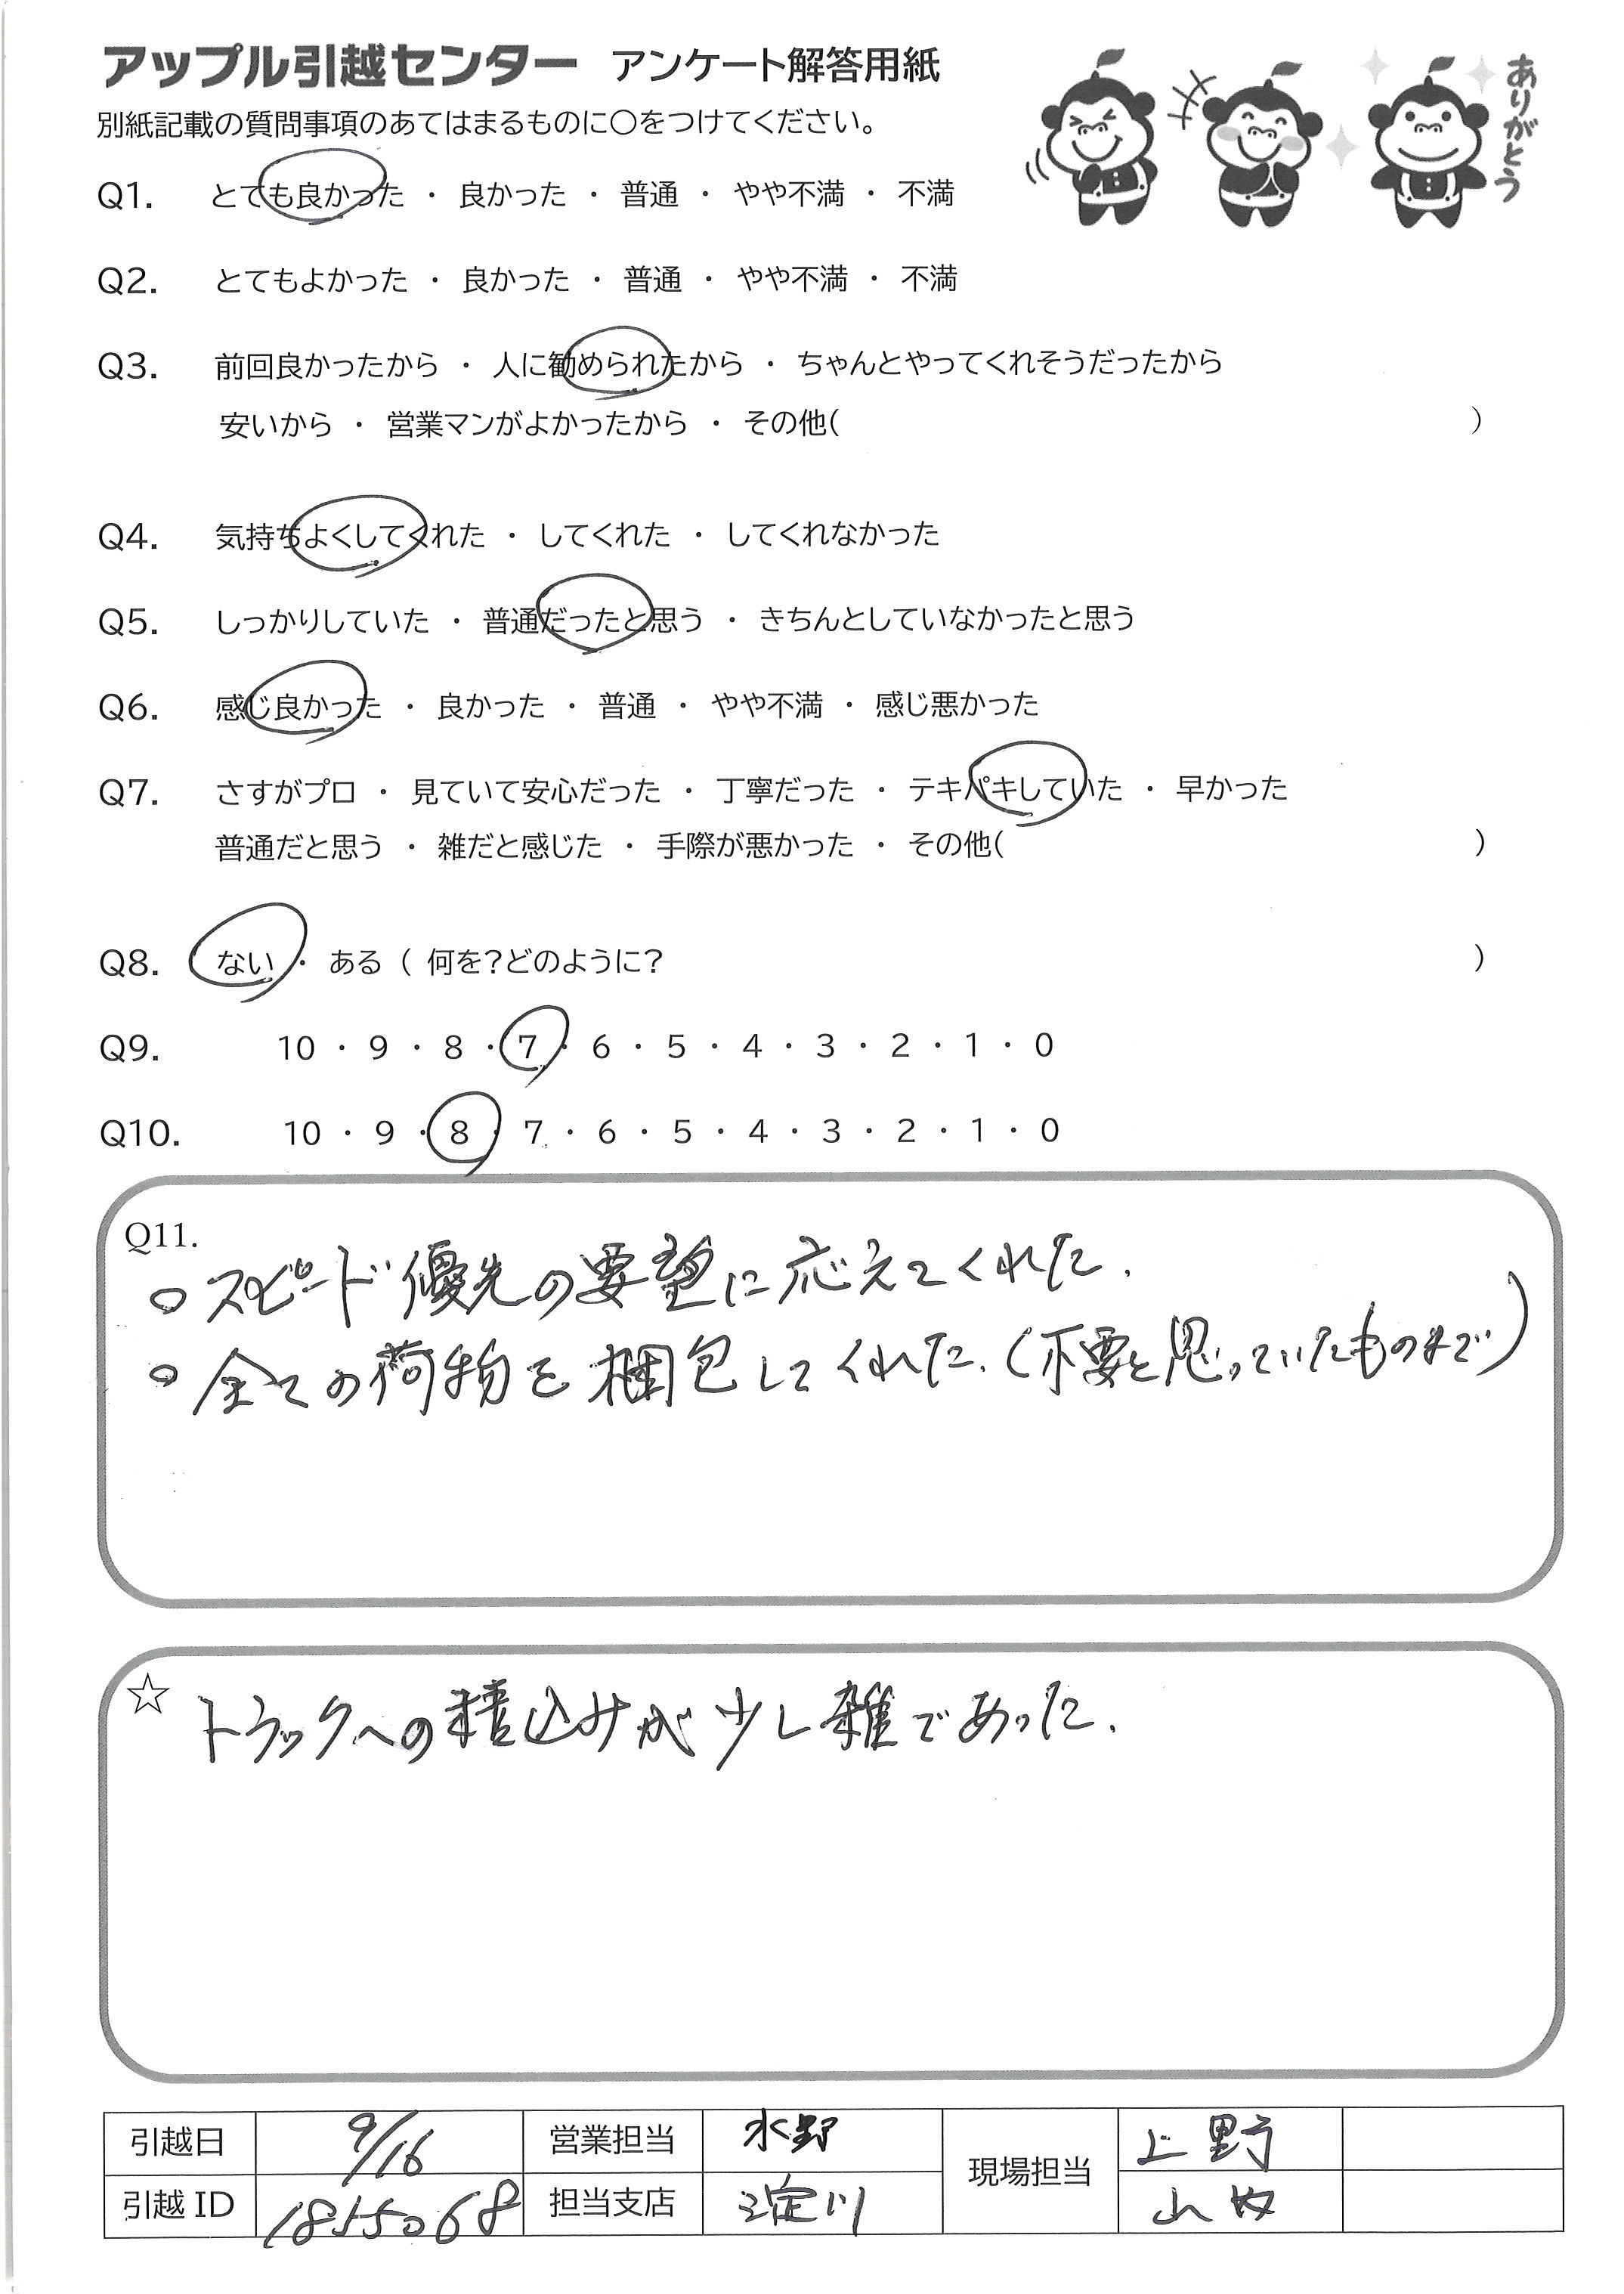 アップル引越センター アンケート解答用紙
ありがとう
別紙記載の質問事項のあてはまるものに○をつけてください。
Q1. とても良かった ・ 良かった ・ 普通 ・ やや不満 ・ 不満
Q2. とてもよかった ・ 良かった ・ 普通 ・ やや不満 ・ 不満
Q3. 前回良かったから ・ 人に勧められたから ・ ちゃんとやってくれそうだったから
安いから ・ 営業マンがよかったから ・ その他( )
Q4. 気持ちよくしてくれた ・ してくれた ・ してくれなかった
Q5. しっかりしていた ・ 普通だったと思う ・ きちんとしていなかったと思う
Q6. 感じ良かった ・ 良かった ・ 普通 ・ やや不満 ・ 感じ悪かった
Q7. さすがプロ ・ 見ていて安心だった ・ 丁寧だった ・ テキパキしていた ・ 早かった
普通だと思う ・ 雑だと感じた ・ 手際が悪かった ・ その他( )
Q8. ない ・ ある ( 何を?どのように? )
Q9. 10 ・ 9 ・ 8 ・ 7 ・ 6 ・ 5 ・ 4 ・ 3 ・ 2 ・ 1 ・ 0
Q10. 10 ・ 9 ・ 8 ・ 7 ・ 6 ・ 5 ・ 4 ・ 3 ・ 2 ・ 1 ・ 0
Q11.
○ スピード優先の要望に応えてくれた.
○ 全ての荷物を梱包してくれた.(不要と思っていたものまで)
☆ トラックへの積込みが少し雑であった.
引越日 9/16 営業担当 水野 現場担当 上野
引越ID 1855068 担当支店 淀川 山牧